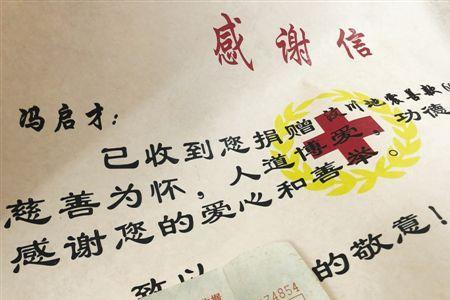 感谢信
冯启才：
已收到您捐赠汶川地震善款
慈善为怀，人道博爱，功德
感谢您的爱心和善举。
致以 的敬意！
74854